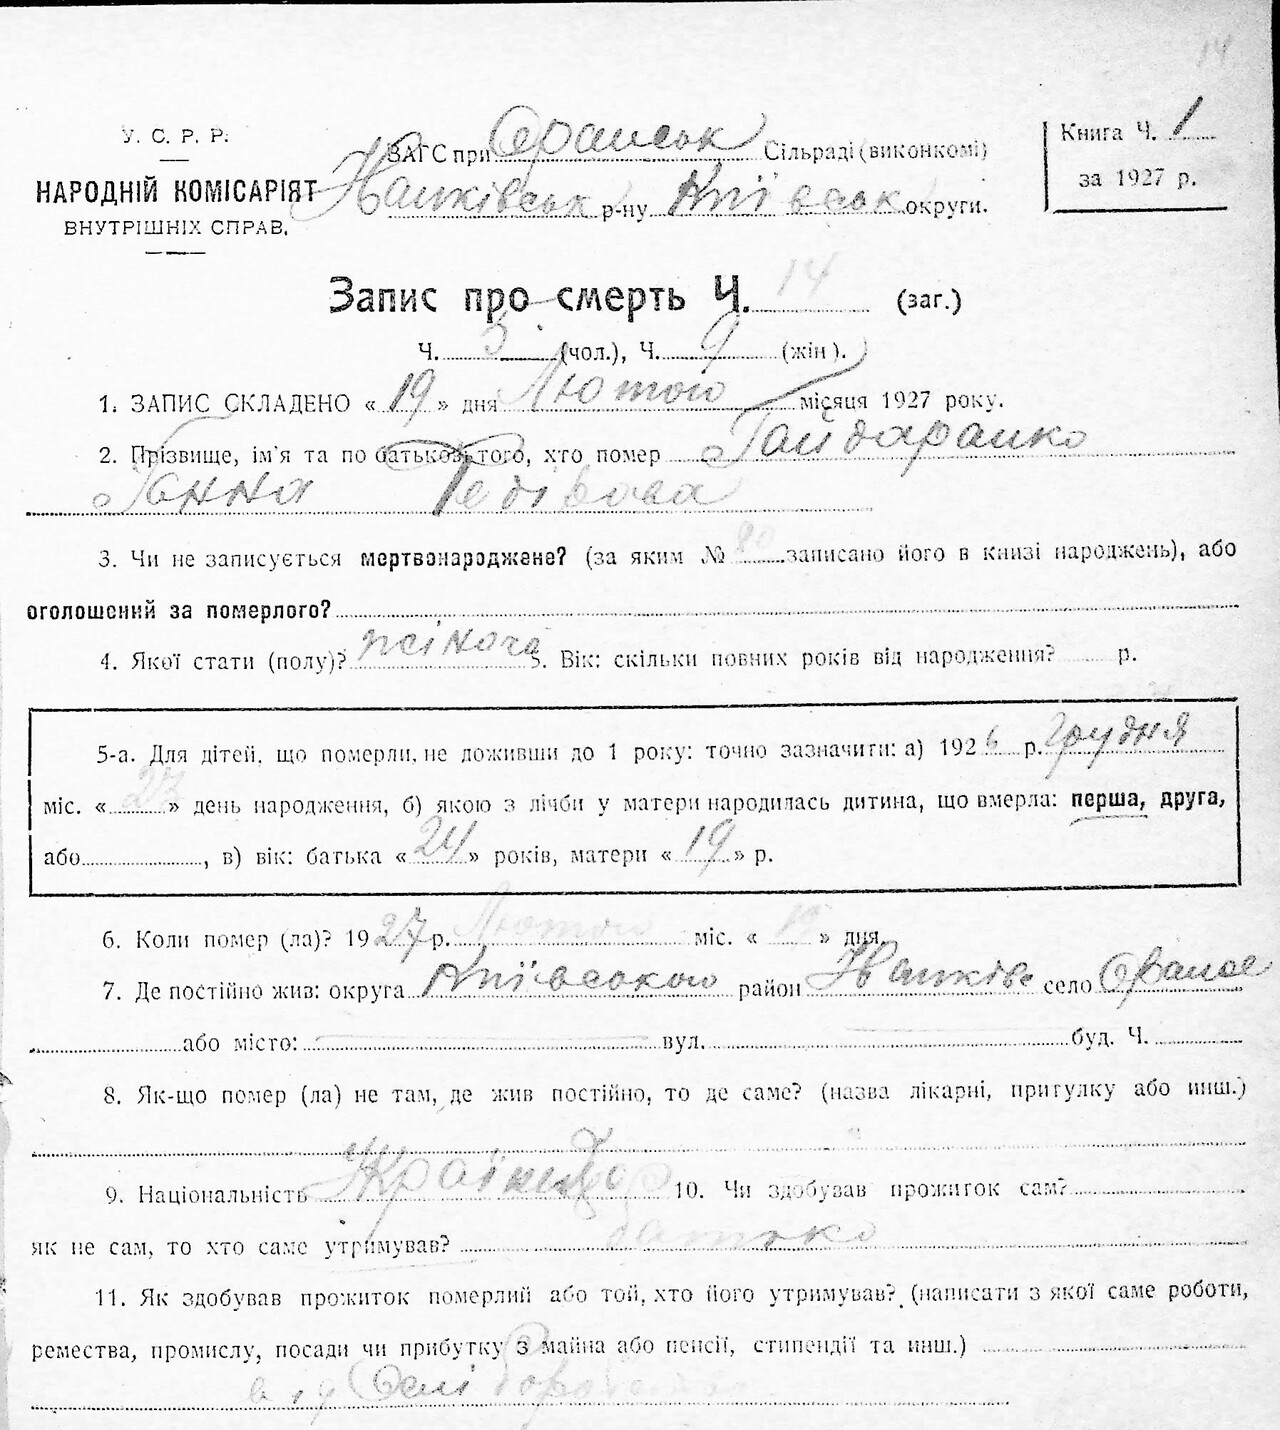 14
У. С. Р. Р.
НАРОДНІЙ КОМІСАРІЯТ
ВНУТРІШНІХ СПРАВ.
ЗАГС при Оранськ Сільраді (виконкомі)
р-ну Київськ округи.
Книга Ч. 1
за 1927 р.
Запис про смерть Ч. 14 (заг.)
Ч. 5 (чол.), Ч. 9 (жін).
1. ЗАПИС СКЛАДЕНО « 19 » дня Лютого місяця 1927 року.
2. Прізвище, ім'я та по батькові того, хто помер
Ганна
3. Чи не записується мертвонароджене? (за яким № записано його в книзі народжень), або
оголошений за померлого?
4. Якої стати (полу)? жіноча 5. Вік: скільки повних років від народження? р.
5-а. Для дітей, що померли, не доживши до 1 року: точно зазначити: а) 1926 р. Грудня
міс. « 27 » день народження, б) якою з лічби у матери народилась дитина, що вмерла: перша, друга,
або , в) вік: батька « 24 » років, матери « 19 » р.
6. Коли помер (ла)? 1927 р. Лютого міс. « » дня.
7. Де постійно жив: округа Київською район село Оране
або місто: вул. буд. Ч.
8. Як-що помер (ла) не там, де жив постійно, то де саме? (назва лікарні, притулку або инш.)
9. Національність 10. Чи здобував прожиток сам?
як не сам, то хто саме утримував? батько
11. Як здобував прожиток померлий або той, хто його утримував? (написати з якої саме роботи,
ремества, промислу, посади чи прибутку з майна або пенсії, стипендії та инш.)